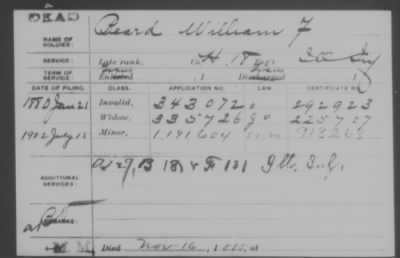 DEAD
NAME OF SOLDIER: Beard William F
SERVICE: Late rank, Co. H, 18 Reg't Ill Inf
TERM OF SERVICE: Enlisted , 1 Discharged , 1
DATE OF FILING. CLASS. APPLICATION NO. LAW CERTIFICATE NO.
1880 Jan 21 Invalid, 343072 292923
Widow, 335726 225707
1902 July 15 Minor, 1,191604 713265
ADDITIONAL SERVICES: 131 Ills. Inf.
REMARKS:
Died Nov 16, 1885, at